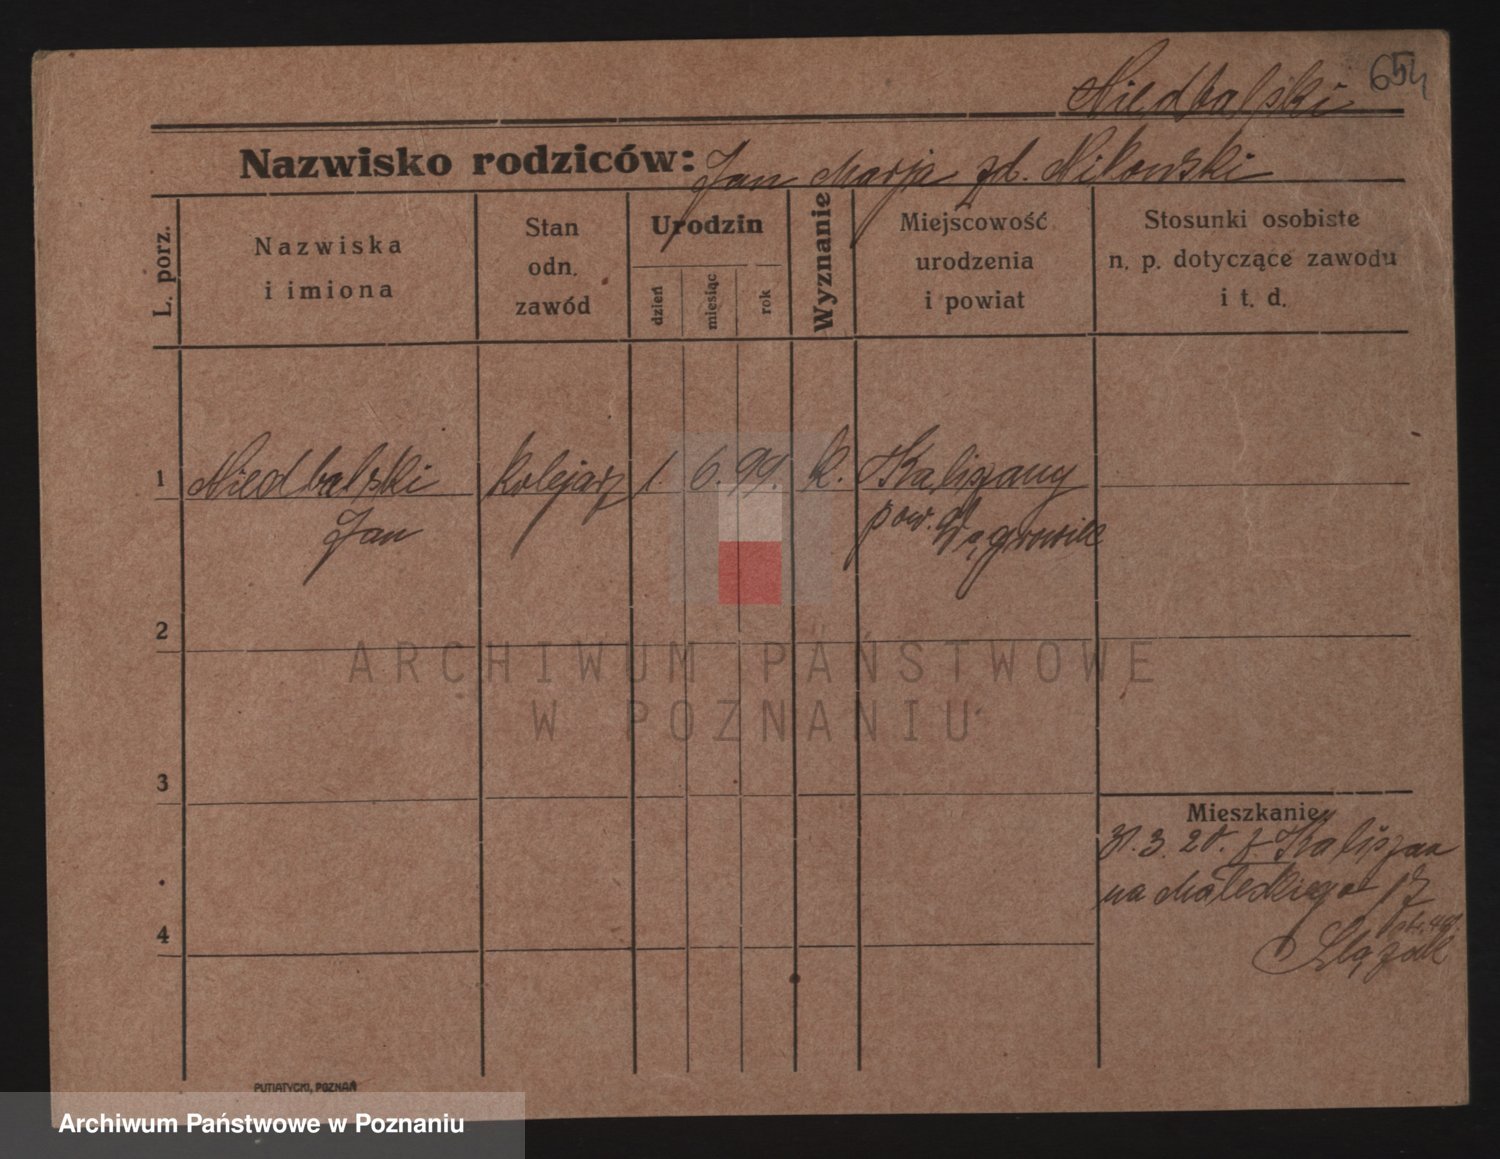 654
Niedbalski
Nazwisko rodziców: Jan Marja zd. Nikowski
L. porz.
Nazwiska
i imiona
Stan
odn.
zawód
Urodzin
dzień
miesiąc
rok
Wyznanie
Miejscowość
urodzenia
i powiat
Stosunki osobiste
n. p. dotyczące zawodu
i t. d.
1 Niedbalski kolejarz 1. 6. 99. k. Kaliszany
Jan pow. Wągrowiec
2
ARCHIWUM PAŃSTWOWE
W POZNANIU
3
Mieszkanie
31. 3. 20. z Kaliszan
na Małeckiego 17
4
PUTIATYCKI, POZNAŃ
Archiwum Państwowe w Poznaniu